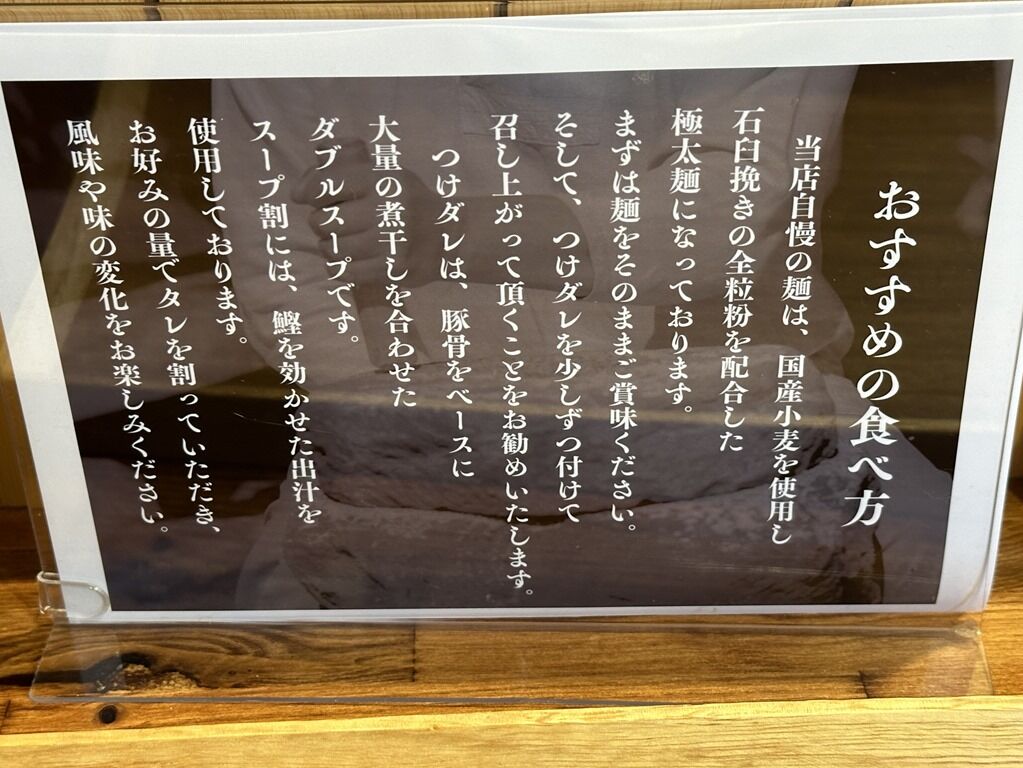 おすすめの食べ方
当店自慢の麺は、国産小麦を使用し
石臼挽きの全粒粉を配合した
極太麺になっております。
まずは麺をそのままご賞味ください。
そして、つけダレを少しずつ付けて
召し上がって頂くことをお勧めいたします。
つけダレは、豚骨をベースに
大量の煮干しを合わせた
ダブルスープです。
スープ割には、鰹を効かせた出汁を
使用しております。
お好みの量でタレを割っていただき、
風味や味の変化をお楽しみください。